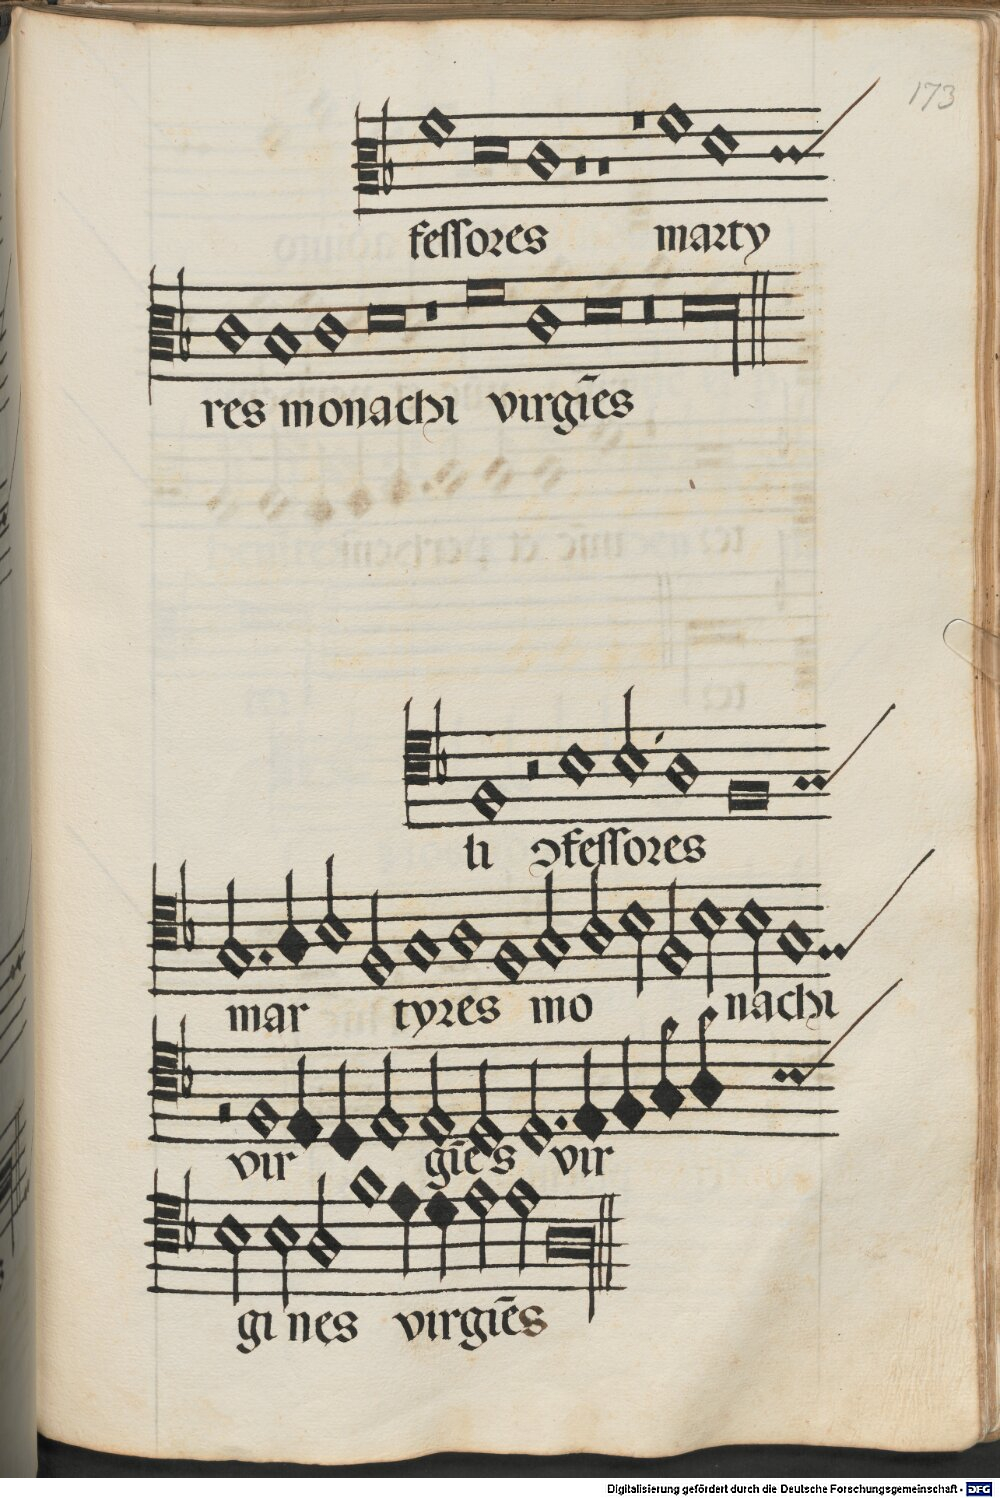 173
feſſores martÿ
res monachi virgīes
li ɔfeſſores
mar tyres mo nachi
vir gīes vir
gi nes virgīes
Digitalisierung gefördert durch die Deutsche Forschungsgemeinschaft - DFG